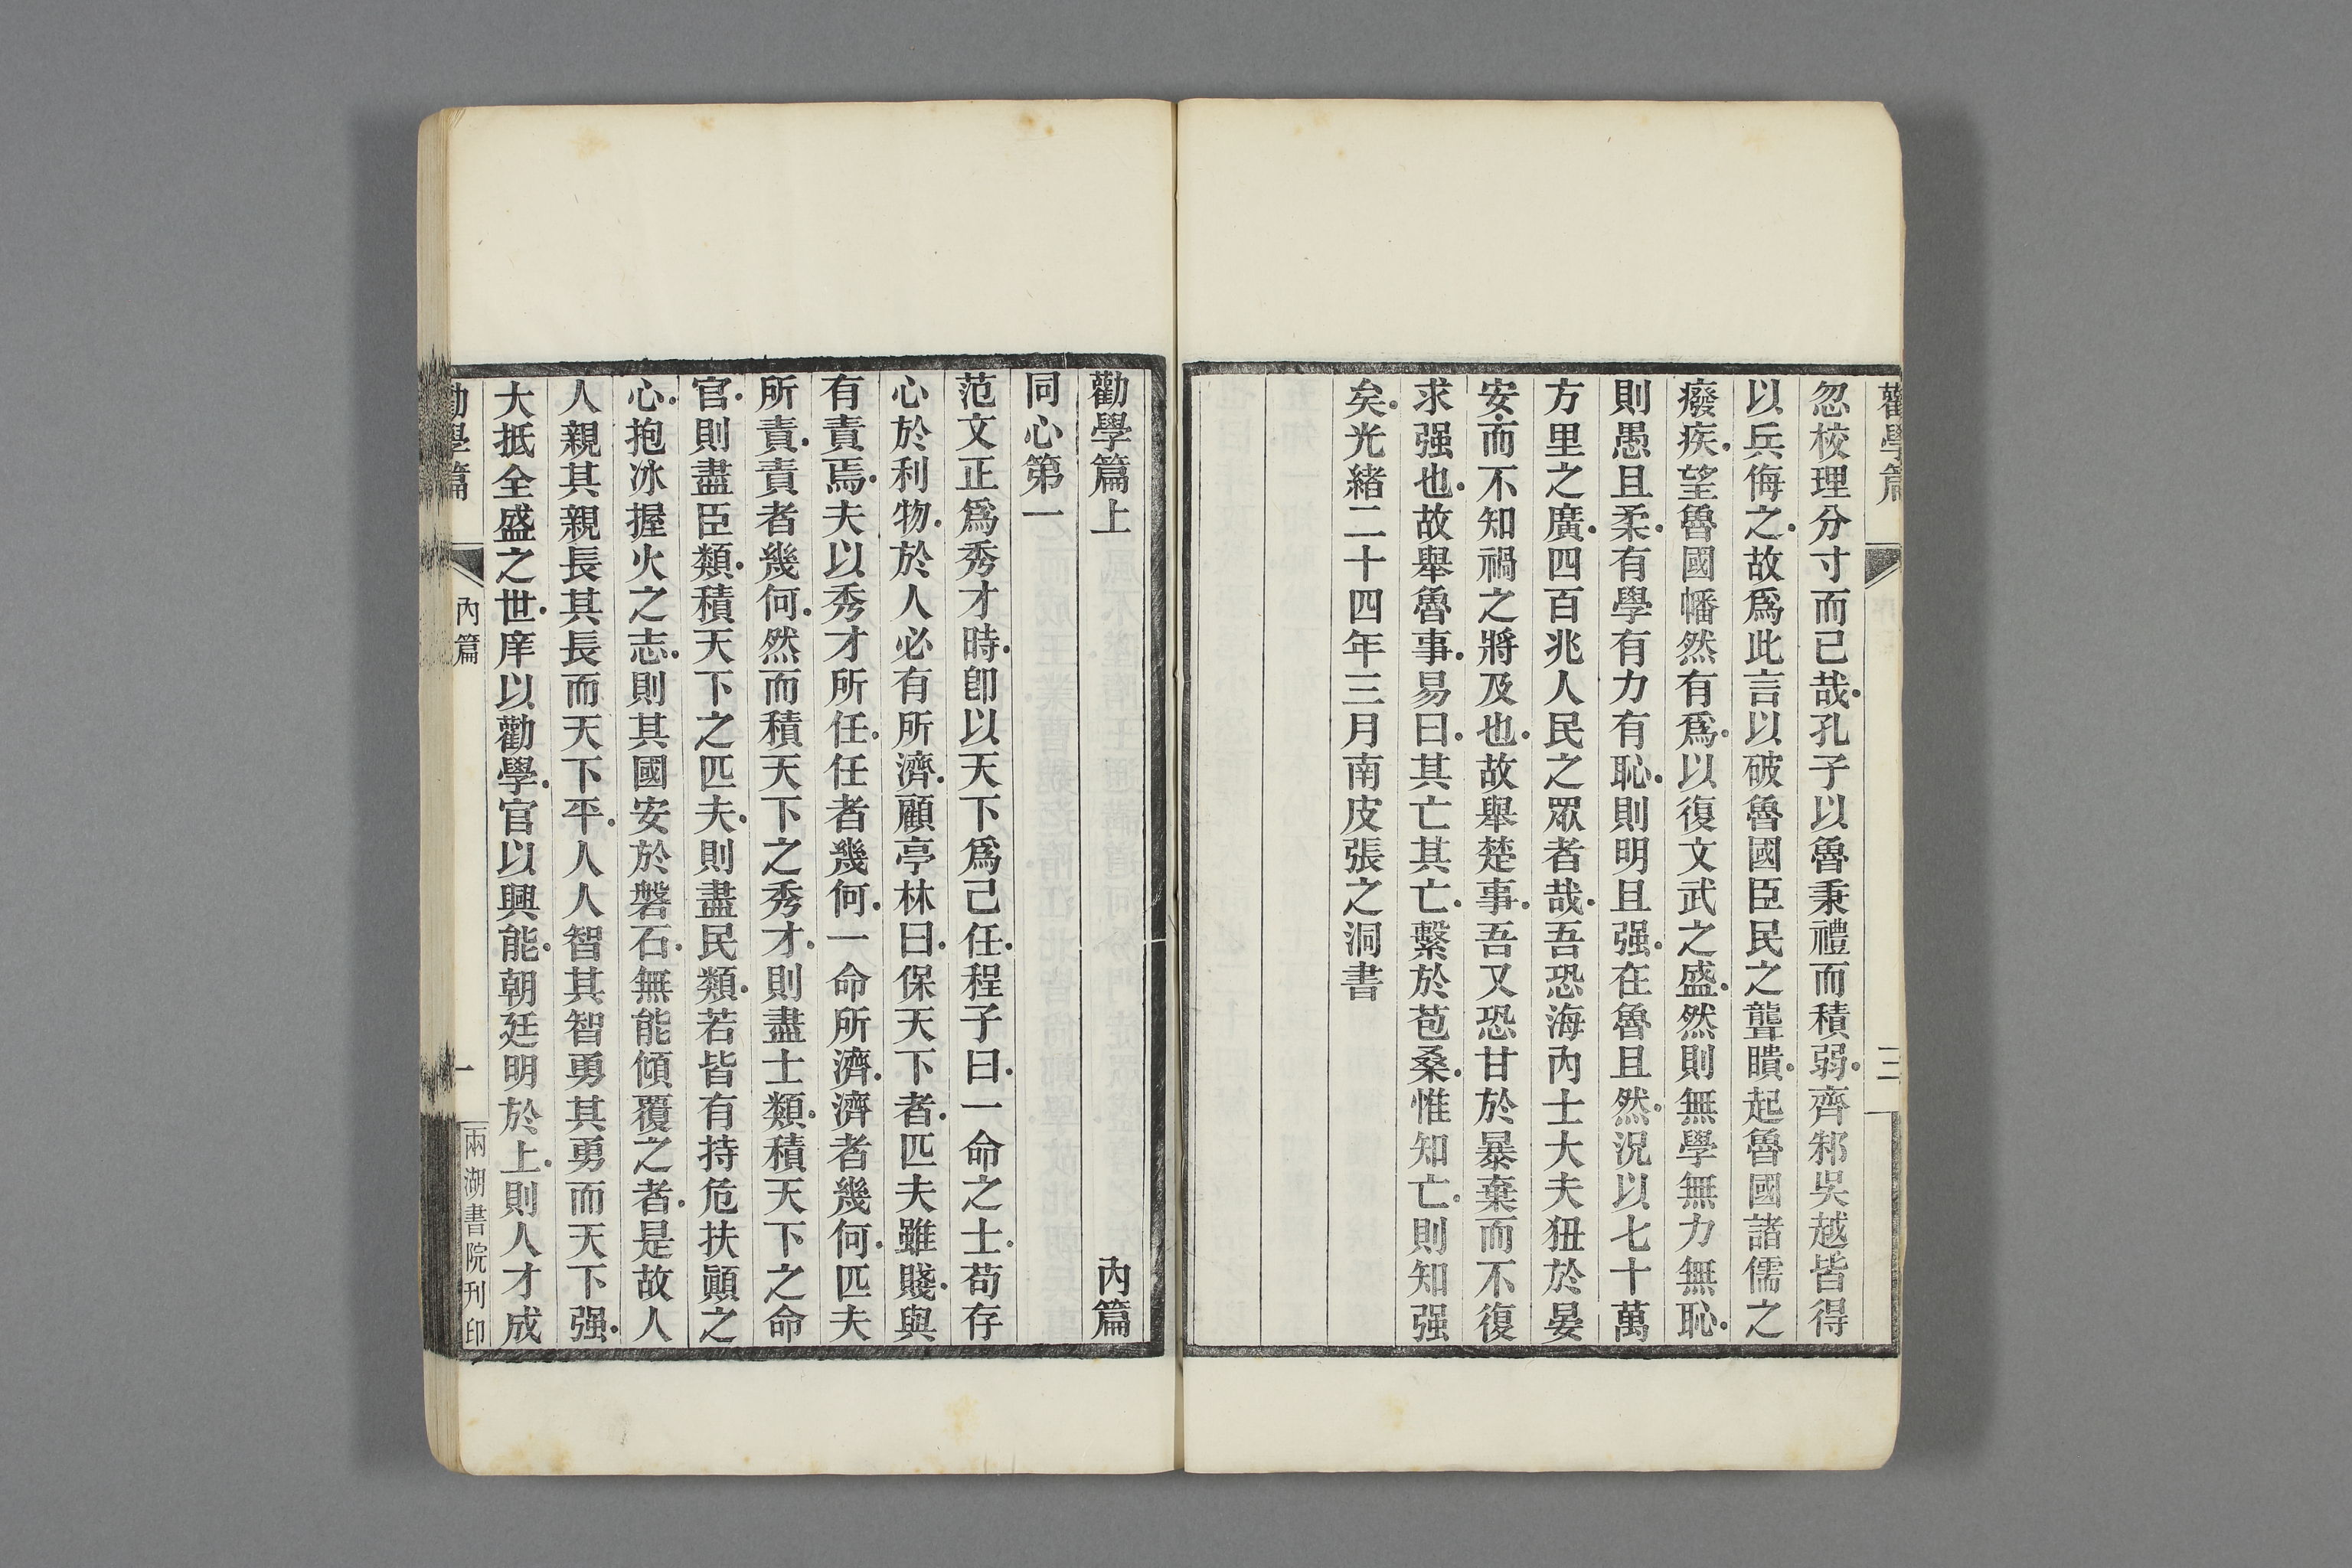 勸學篇
三
忽校理分寸而已哉孔子以魯秉禮而積弱齊邾吳越皆得
以兵侮之故爲此言以破魯國臣民之聾聵起魯國諸儒之
癈疾望魯國幡然有爲以復文武之盛然則無學無力無恥
則愚且柔有學有力有恥則明且强在魯且然況以七十萬
方里之廣四百兆人民之眾者哉吾恐海內士大夫狃於晏
安而不知禍之將及也故舉楚事吾又恐甘於暴棄而不復
求强也故舉魯事易曰其亡其亡繫於苞桑惟知亡則知强
矣光緒二十四年三月南皮張之洞書
勸學篇上 內篇
同心第一
范文正爲秀才時卽以天下爲己任程子曰一命之士苟存
心於利物於人必有所濟顧亭林曰保天下者匹夫雖賤與
有責焉夫以秀才所任任者幾何一命所濟濟者幾何匹夫
所責責者幾何然而積天下之秀才則盡士類積天下之命
官則盡臣類積天下之匹夫則盡民類若皆有持危扶顚之
心抱冰握火之志則其國安於磐石無能傾覆之者是故人
人親其親長其長而天下平人人智其智勇其勇而天下强
大抵全盛之世庠以勸學官以興能朝廷明於上則人才成
勸學篇 內篇 一 兩湖書院刊印